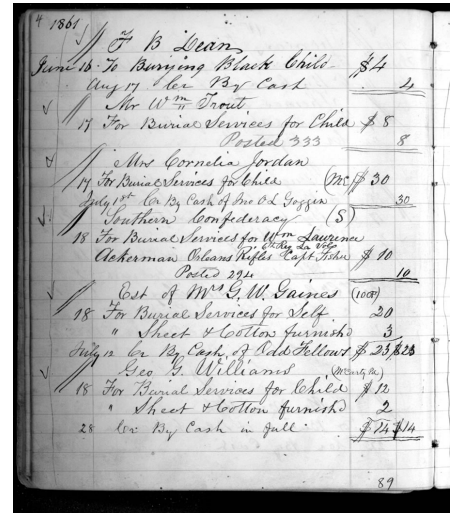 4 1861
F B Dean
June 16 To Burying Black Child $4
Aug 17 Cr By Cash 4
Mr Wm Trout
17 For Burial Services for Child $ 8
Posted 333 8
Mrs Cornelia Jordan
17 For Burial Services for Child (Mc) $ 30
July 1st Cr By Cash of Jno O L Goggin 30
Southern Confederacy (S)
18 For Burial Services for Wm Lawrence
6th Reg La Vols
Ackerman Orleans Rifles Capt Fisher $ 10
Posted 294 10
Est of Mrs G. W. Gaines (100F)
18 For Burial Services for Self 20
" Sheet & Cotton furnishd 3
July 12 Cr By Cash of Odd Fellows $ 23 $23
Geo G Williams
18 For Burial Services for Child $ 12
" Sheet & Cotton furnishd 2
28 Cr By Cash in full $14 $14
89